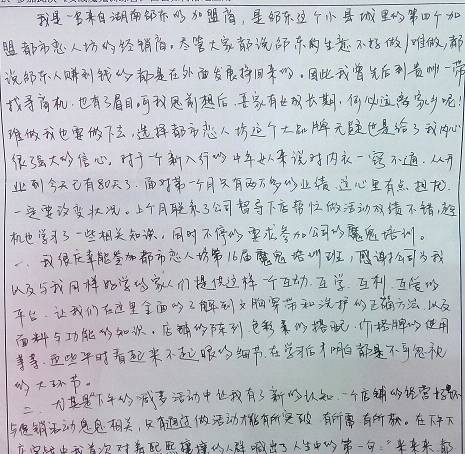 我是一名来自湖南邵东的加盟商，是邵东这个小县城里的第四个加
盟都市恋人坊的经销商。尽管大家都说邵东的生意不好做！难做，都
说邵东人赚到钱的都是在外面发展挣回来的。因此我曾先后到贵州一带
找寻商机，也有了眉目。可我思前想后，丢家有业放长期，何必远离家乡呢！
难做我也要做下去，选择都市恋人坊这个大品牌无疑也是给了我内心
很强大的信心，对于一个新入行的中年女人来说对内衣一窍不通，从开
业到今天已有80天了。面对第一个月只有两万多的业绩，这心里有点担忧，
一定要改变状况。上个月联系了公司督导下店帮忙做活动成绩不错，趁
机也学习了一些相关知识，同时不停的要求参加公司的魔鬼培训。
一、我很庆幸能参加都市恋人坊第16届魔鬼培训班，感谢公司为我
以及与我同样好学的家人们提供这样一个互动、互学、互利、互管的
平台，让我们在这里全面的了解到文胸穿带和洗护的正确方法，以及
面料与功能的知识，店铺的陈列，色彩系的搭配，价格牌的使用
等等，这些平时看起来不起眼的细节，在学习后才明白都是不可忽视
的大环节。
二、尤其是下午的减季活动中让我有了新的认知，一个店铺的经营好坏
与促销活动息息相关，只有通过做活动才能有所突破，有所需，有所获。在下午下
在实践中我首次对着熙熙攘攘的人群喊出了人生中的第一句："来来来都